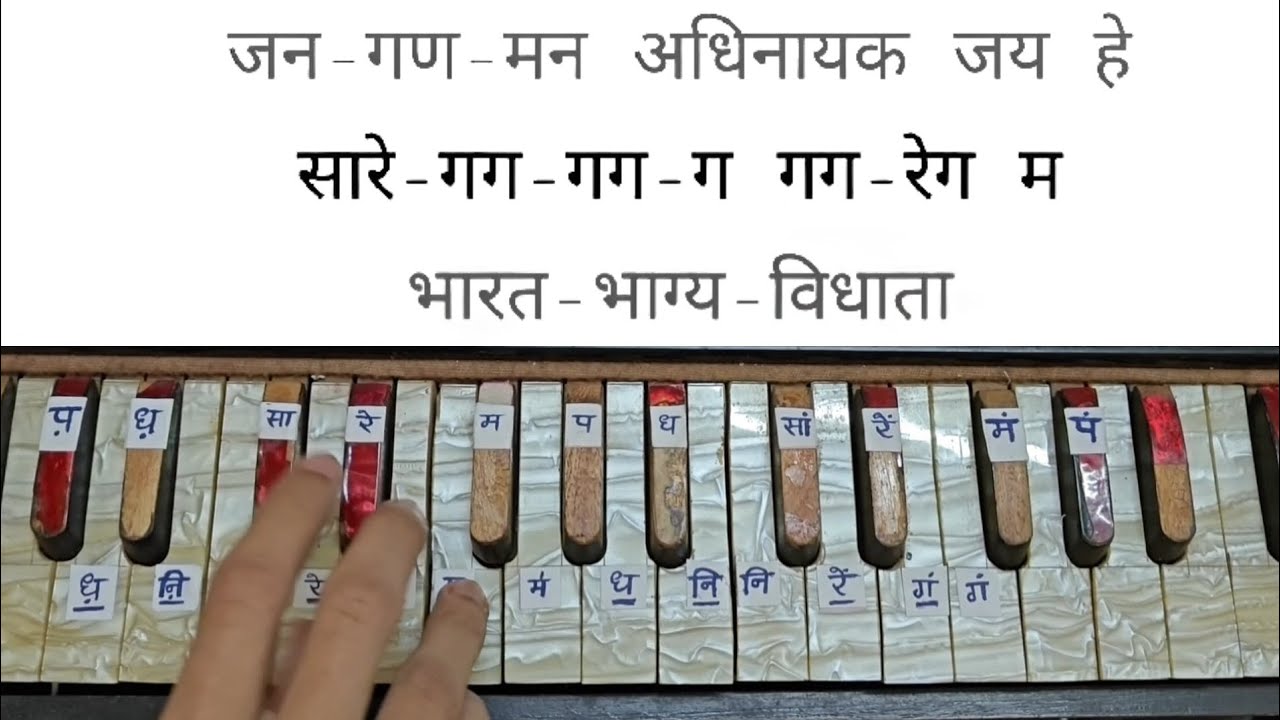 जन-गण-मन अधिनायक जय हे
सारे-गग-गग-ग गग-रेग म
भारत-भाग्य-विधाता
प़ ध़ सा रे म प ध सां रें मं पं
ध़ ऩि रे म॑ ध नि नि रें गं गं